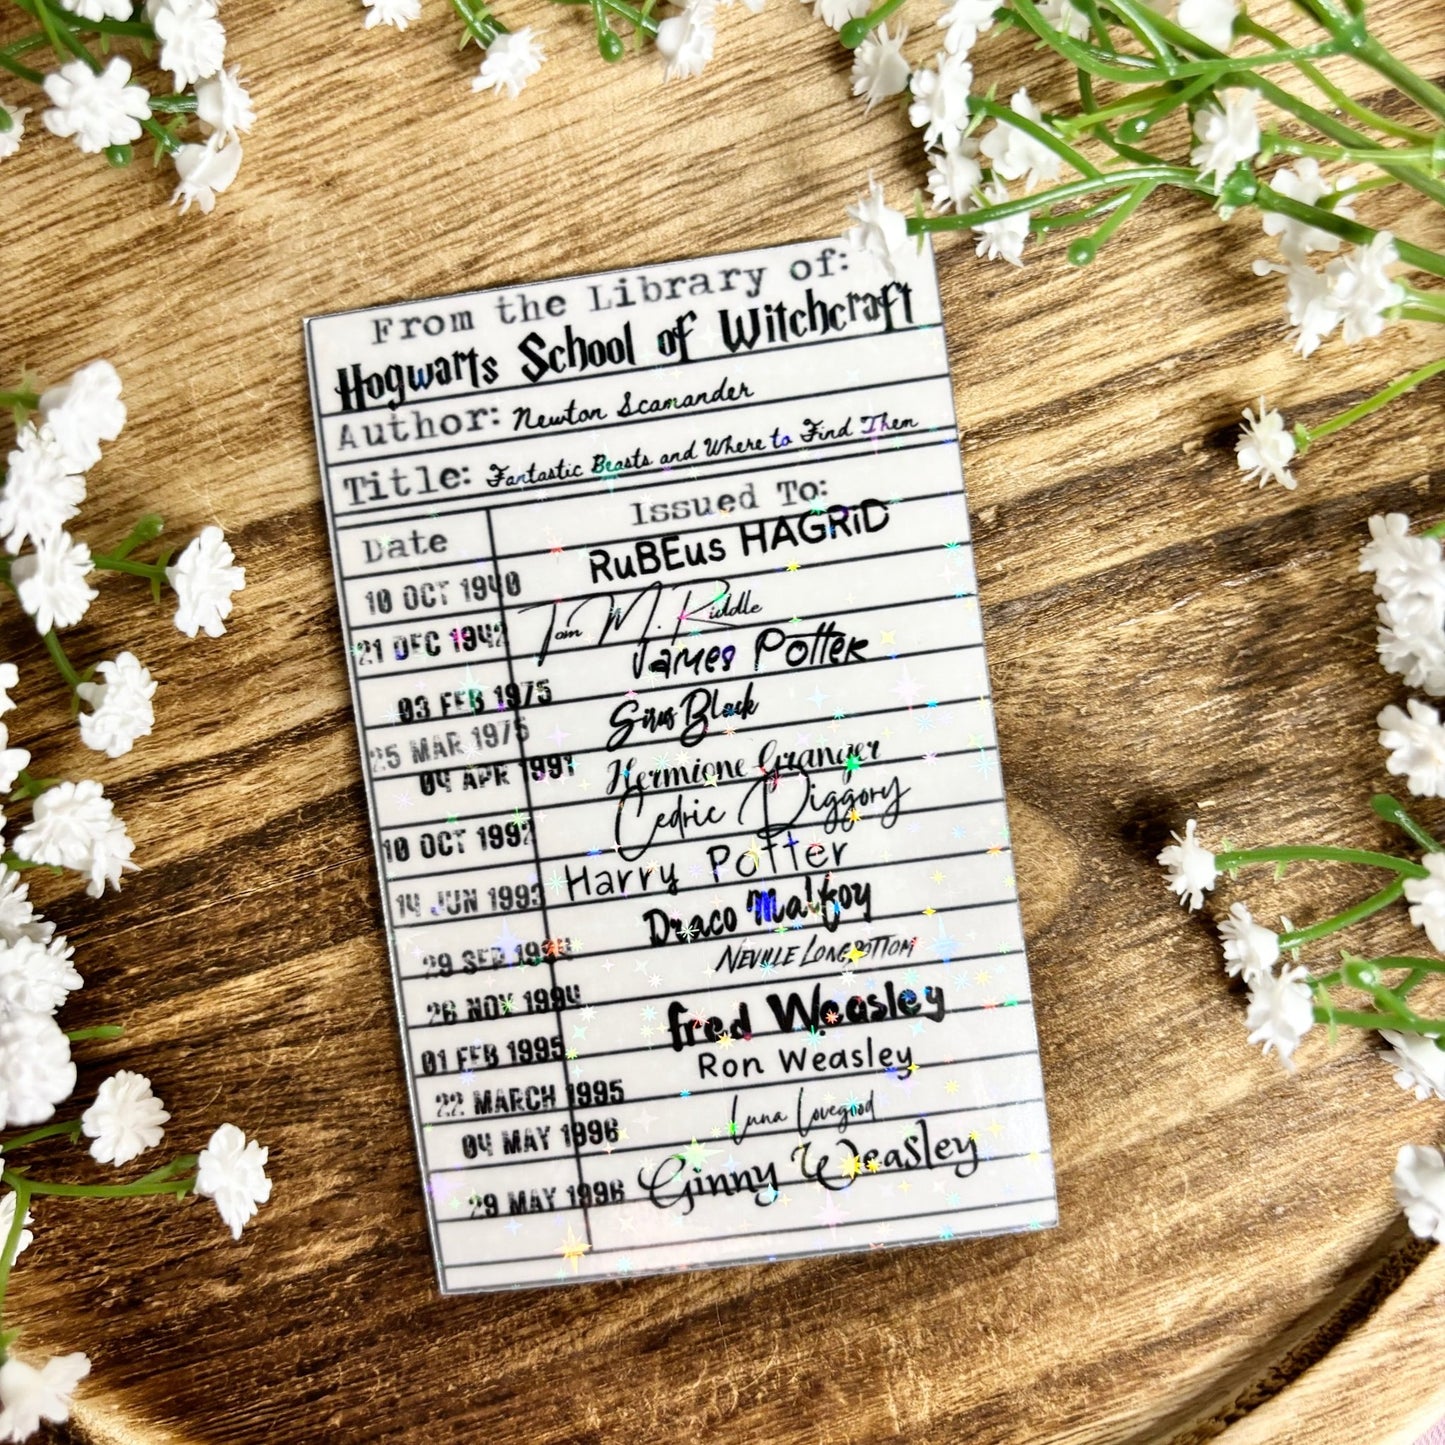 From the Library of:
Hogwarts School of Witchcraft
Author: Newton Scamander
Title: Fantastic Beasts and Where to Find Them
Date Issued To:
10 OCT 1940 RuBEus HAGRiD
21 DEC 1942 Tom M. Riddle
03 FEB 1975 James Potter
25 MAR 1975 Sirius Black
04 APR 1991 Hermione Granger
10 OCT 1992 Cedric Diggory
14 JUN 1993 Harry Potter
29 SEP 1994 Draco Malfoy
26 NOV 1994 Neville Longbottom
01 FEB 1995 fred Weasley
22 MARCH 1995 Ron Weasley
04 MAY 1996 Luna Lovegood
29 MAY 1996 Ginny Weasley